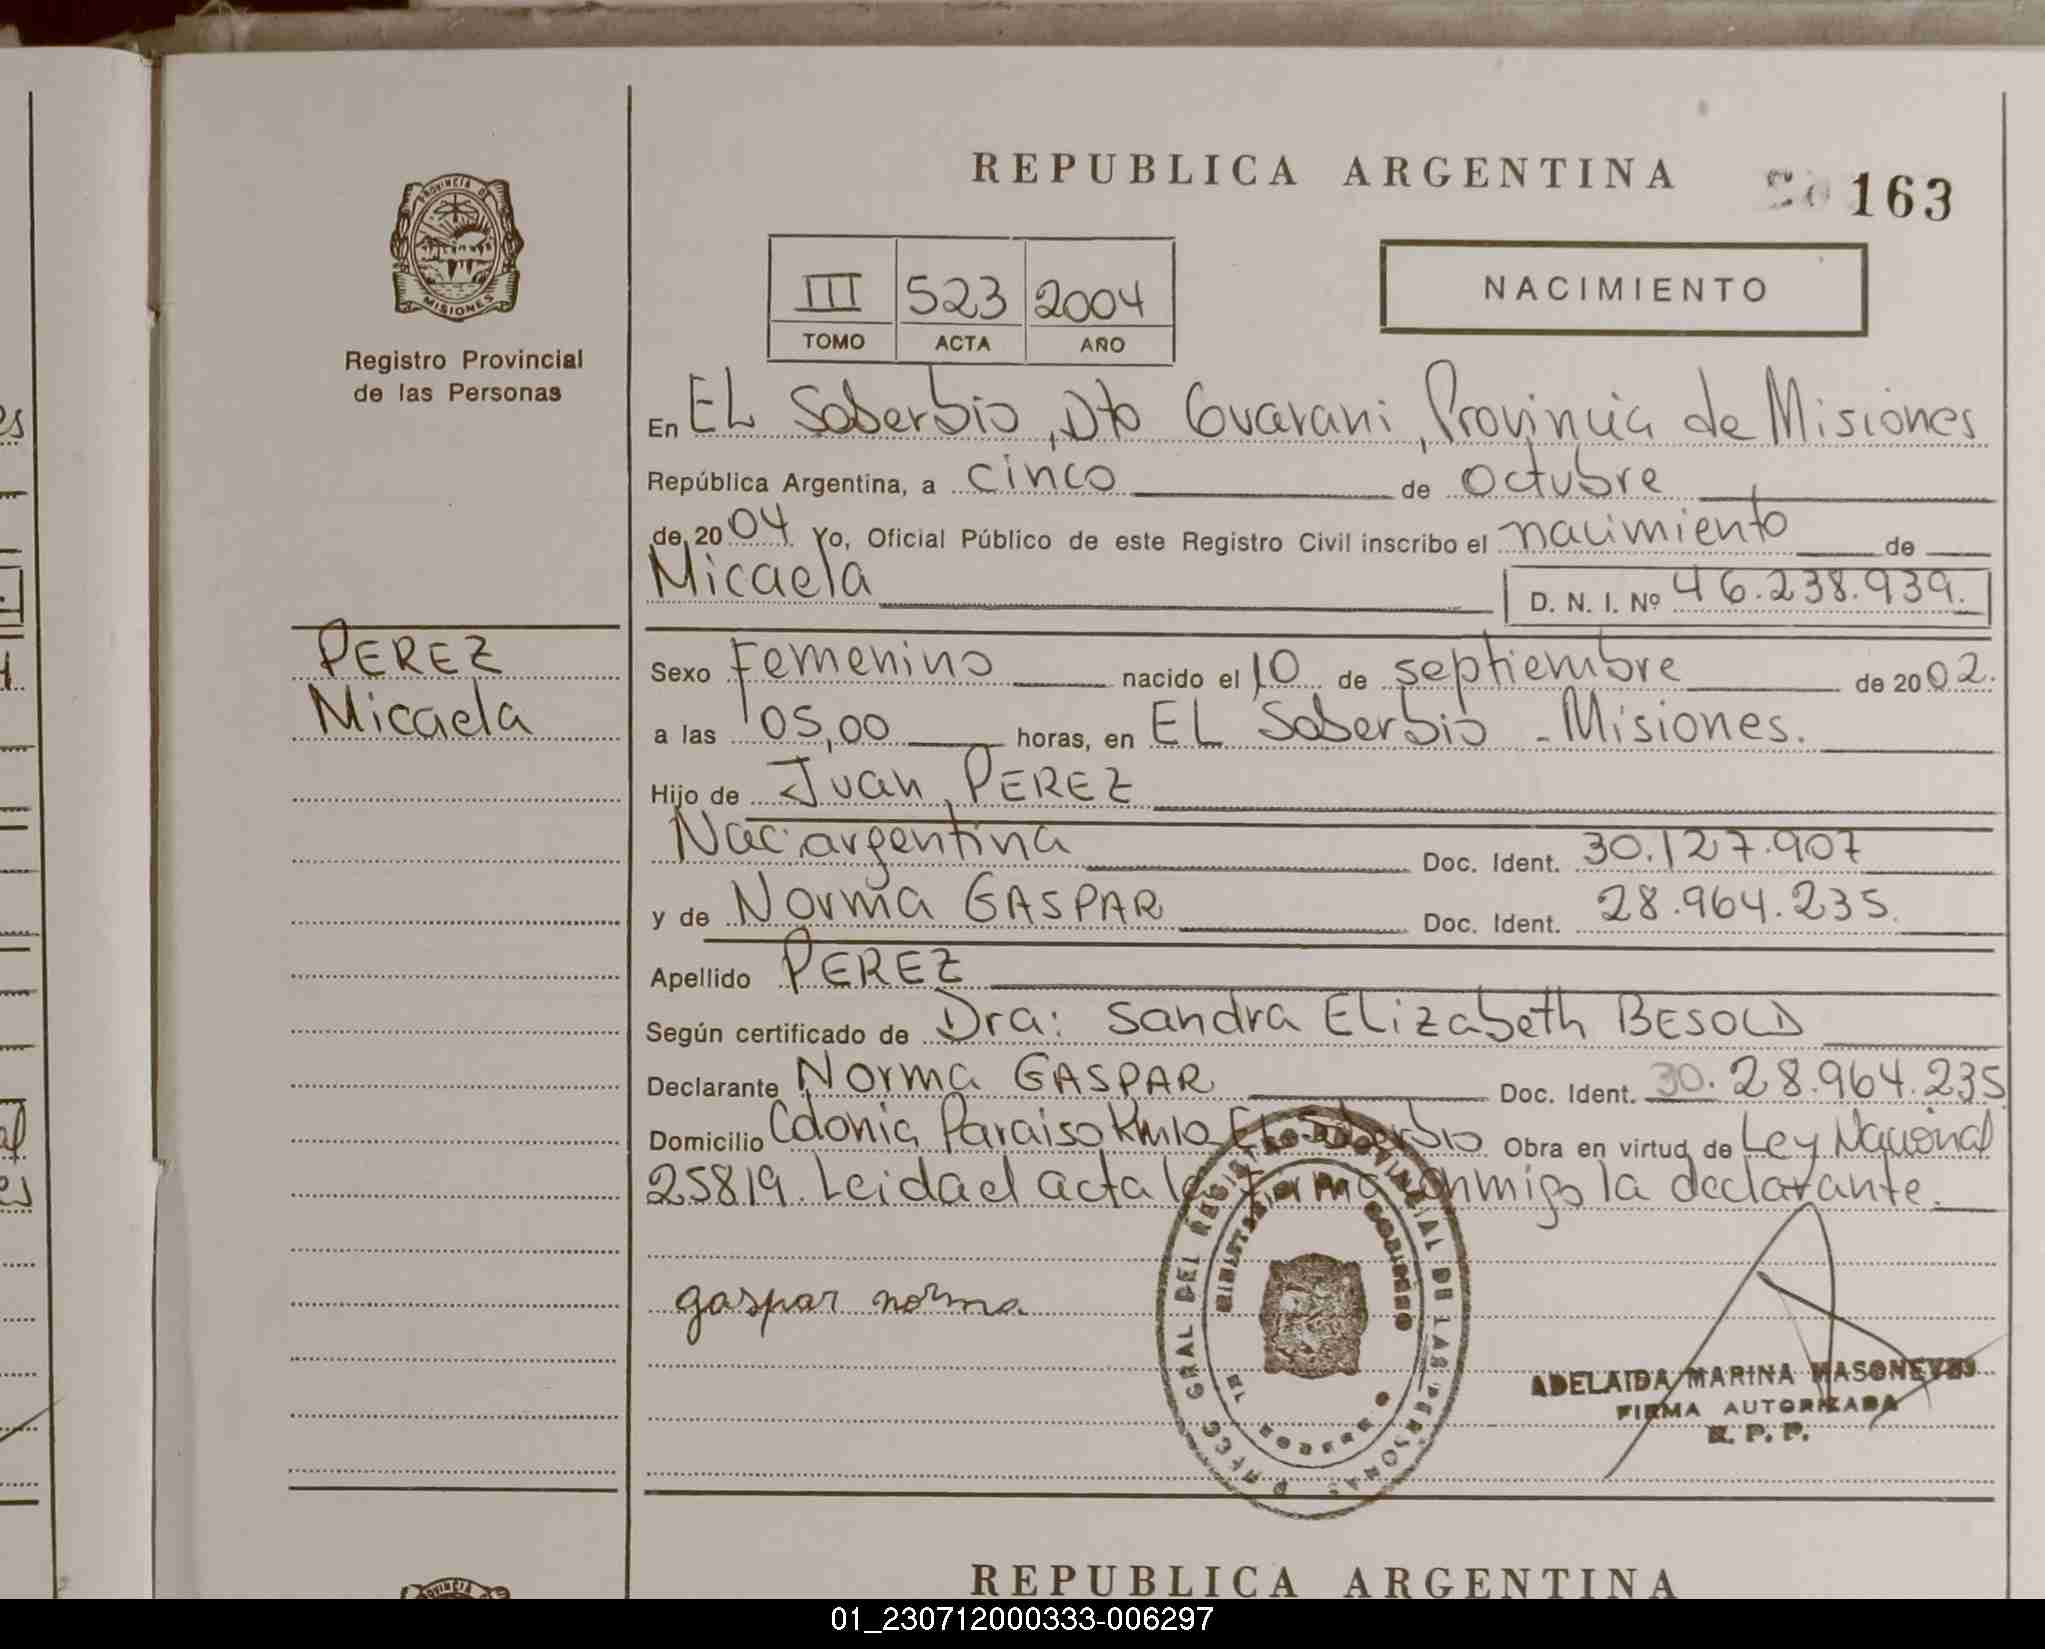 REPUBLICA ARGENTINA
163
PROVINCIA DE
MISIONES
Registro Provincial
de las Personas
III 523 2004
TOMO ACTA AÑO
NACIMIENTO
En EL Soberbio, Dto Guarani, Provincia de Misiones
República Argentina, a cinco de octubre
de 2004 Yo, Oficial Público de este Registro Civil inscribo el nacimiento de
Micaela D. N. I. Nº 46.238.939.
PEREZ
Micaela
Sexo Femenino nacido el 10 de septiembre de 2002.
a las 05,00 horas, en EL Soberbio - Misiones.
Hijo de Juan PEREZ
Nac. argentina Doc. Ident. 30.127.907
y de Norma GASPAR Doc. Ident. 28.964.235.
Apellido PEREZ
Según certificado de Dra: Sandra Elizabeth BESOLD
Declarante Norma GASPAR Doc. Ident. 30. 28.964.235
Domicilio Colonia Paraiso Km10 El Soberbio Obra en virtud de Ley Nacional
25819. Leida el acta la firma conmigo la declarante.
gaspar norma
GRAL DEL REGISTRO PROVINCIAL DE LAS PERSONAS
MINISTERIO DE GOBIERNO
ADELAIDA MARINA
FIRMA AUTORIZADA
R. P. P.
REPUBLICA ARGENTINA
01_230712000333-006297